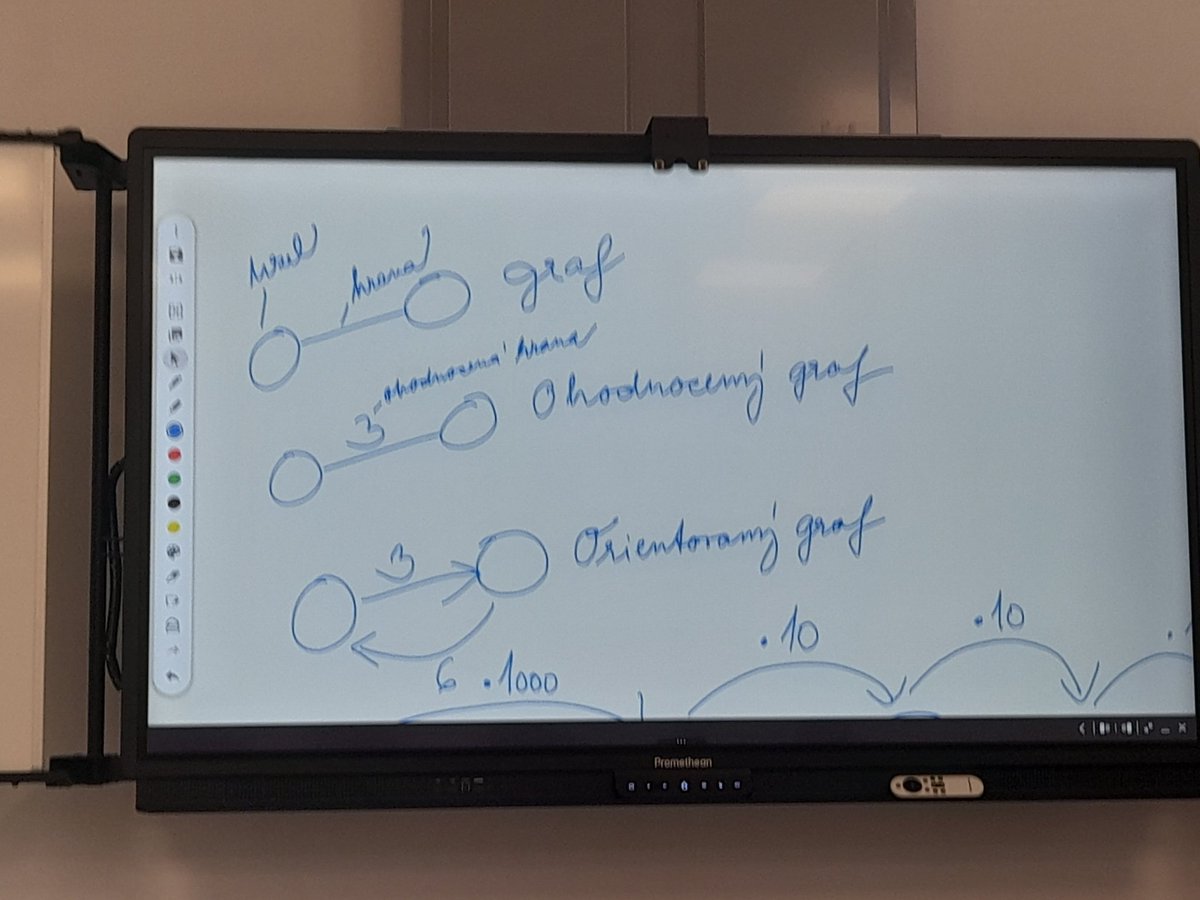 uzel
hrana
graf
ohodnocená hrana
3
Ohodnocený graf
3
Orientovaný graf
6
.1000
.10
.10
Promethean